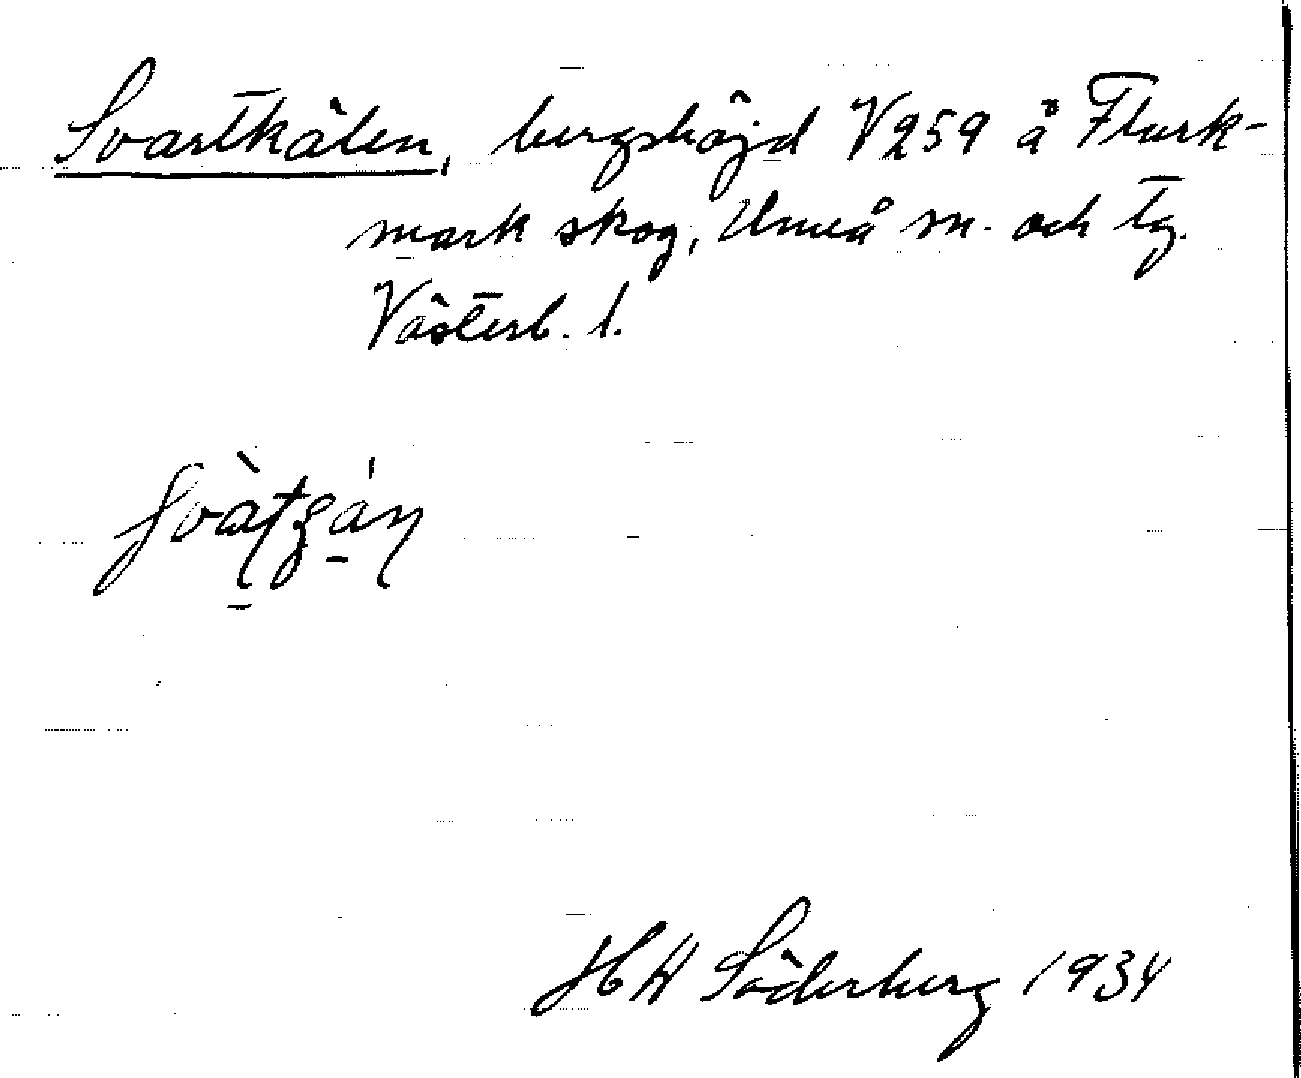 Svartkälen, bergshöjd V259 å Flurk-
mark skog, Umeå sn. och tg.
Västerb. l.
HW Söderberg 1934